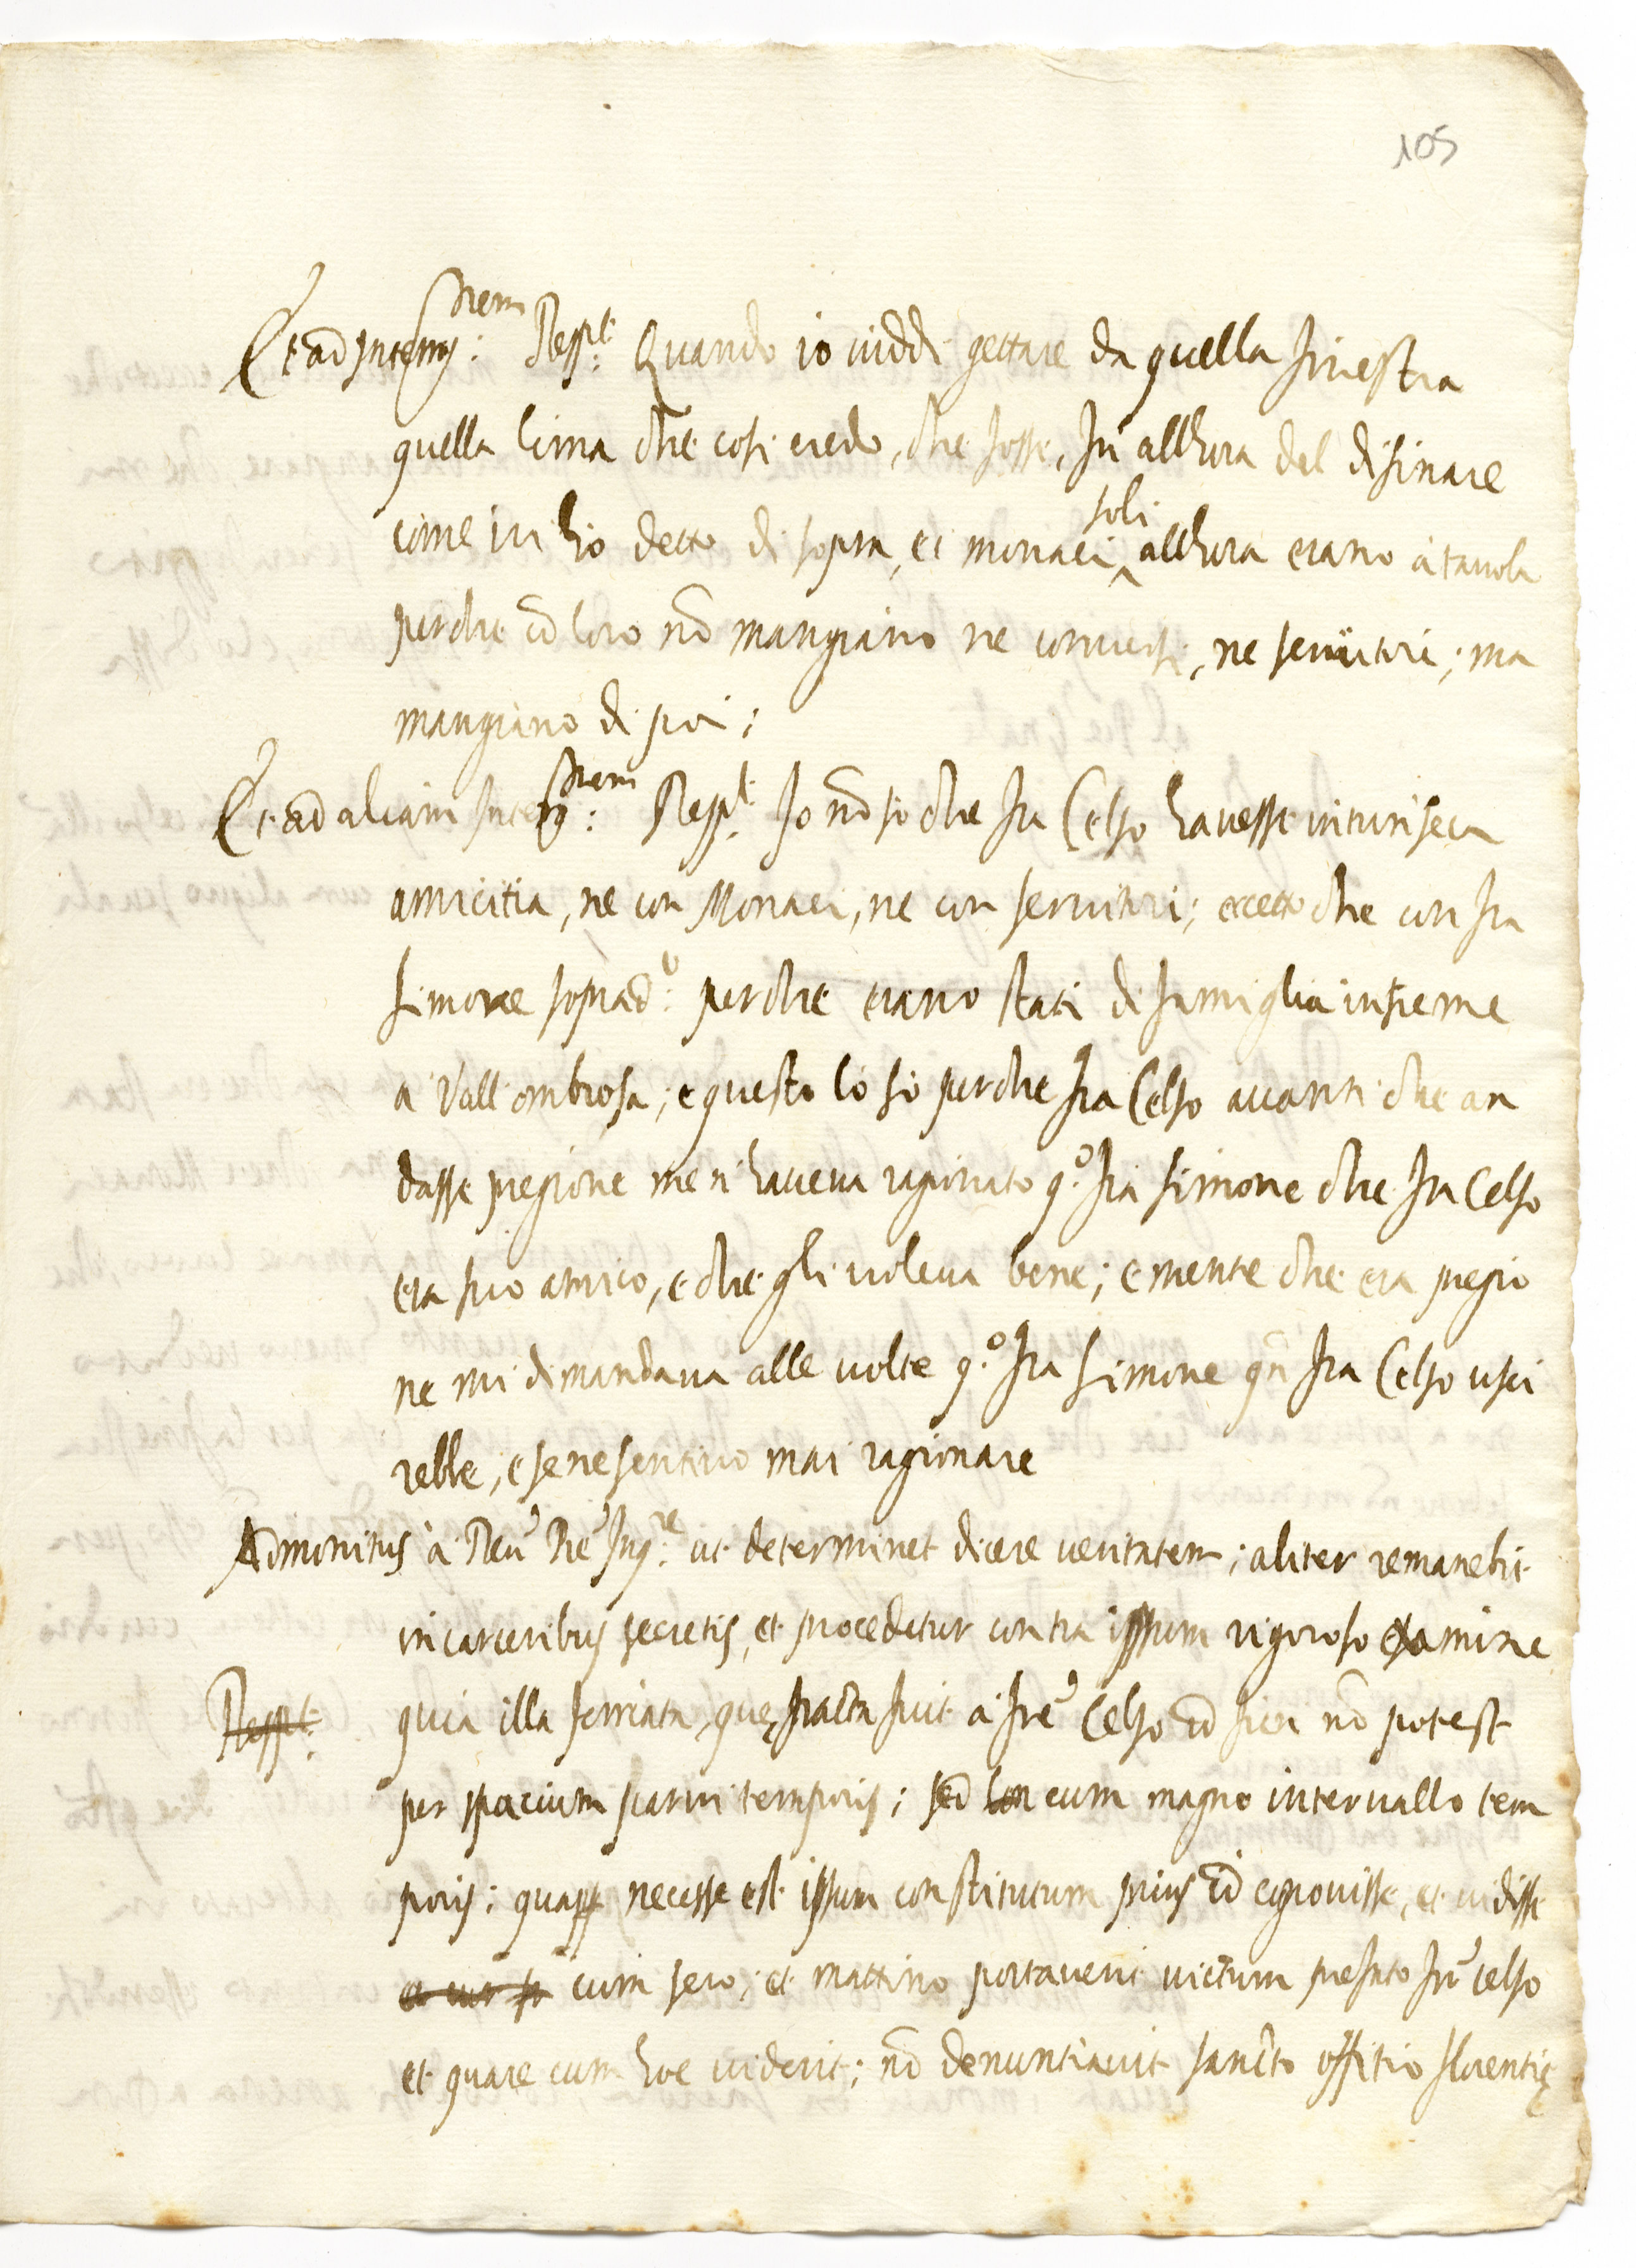 105
Et ad Interrog:nem Resp:t Quando io viddi gettare da quella finestra
quella lima che cosi credo, che fosse, fù all'hora del disinare
come io hò detto di sopra, e i monaci soli all'hora erano à tavola
perche cō loro nō mangiano ne conversi, ne servitori; ma
mangiano di poi;
Et ad aliam Interrog:nem Resp:t Io nō so che fra Celso havesse intrinseca
amicitia, ne con Monaci, ne con servitori; eccetto che con fra
Simone soprad:o perche erano stati di famiglia insieme
a Vall'ombrosa; e questo lo sò perche fra Celso avanti che an
dasse pregione me n'haveva ragionato q:o fra Simone che fra Celso
era suo amico, e che gli voleva bene; e mentre che era pregio
ne mi dimandava alle volte q:o fra Simone qn̄ fra Celso usci
rebbe, e se ne sentivo mai ragionare
Admonitus à Reu Pre Inq:re ut determinet dicere veritatem; aliter remanebit
in carceribus secretis, et procedetur contra ipsum rigoroso examine
Resp:t quia illa ferriata, quę fracta fuit a fre Celso id fieri nō potest
per spacium parvi temporis; sed con cum magno intervallo tem
poris; necesse est ipsum constitutum prius id cognovisse, et vidisse
et cur fr cum sero, et mattino portaverit victum prefato fri Celso
et quare cum hoc viderit; nō denuntiavit sancto offitio florentię